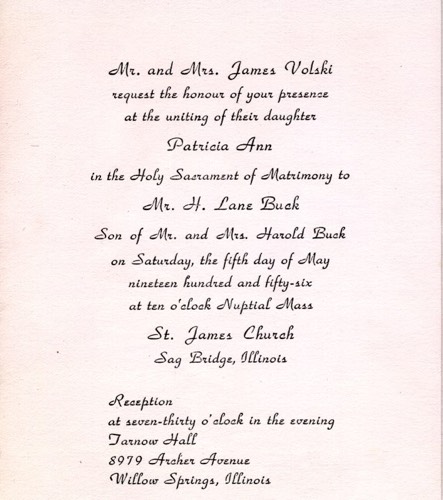 Mr. and Mrs. James Volski
request the honour of your presence
at the uniting of their daughter
Patricia Ann
in the Holy Sacrament of Matrimony to
Mr. H. Lane Buck
Son of Mr. and Mrs. Harold Buck
on Saturday, the fifth day of May
nineteen hundred and fifty-six
at ten o'clock Nuptial Mass
St. James Church
Sag Bridge, Illinois
Reception
at seven-thirty o'clock in the evening
Tarnow Hall
8979 Archer Avenue
Willow Springs, Illinois